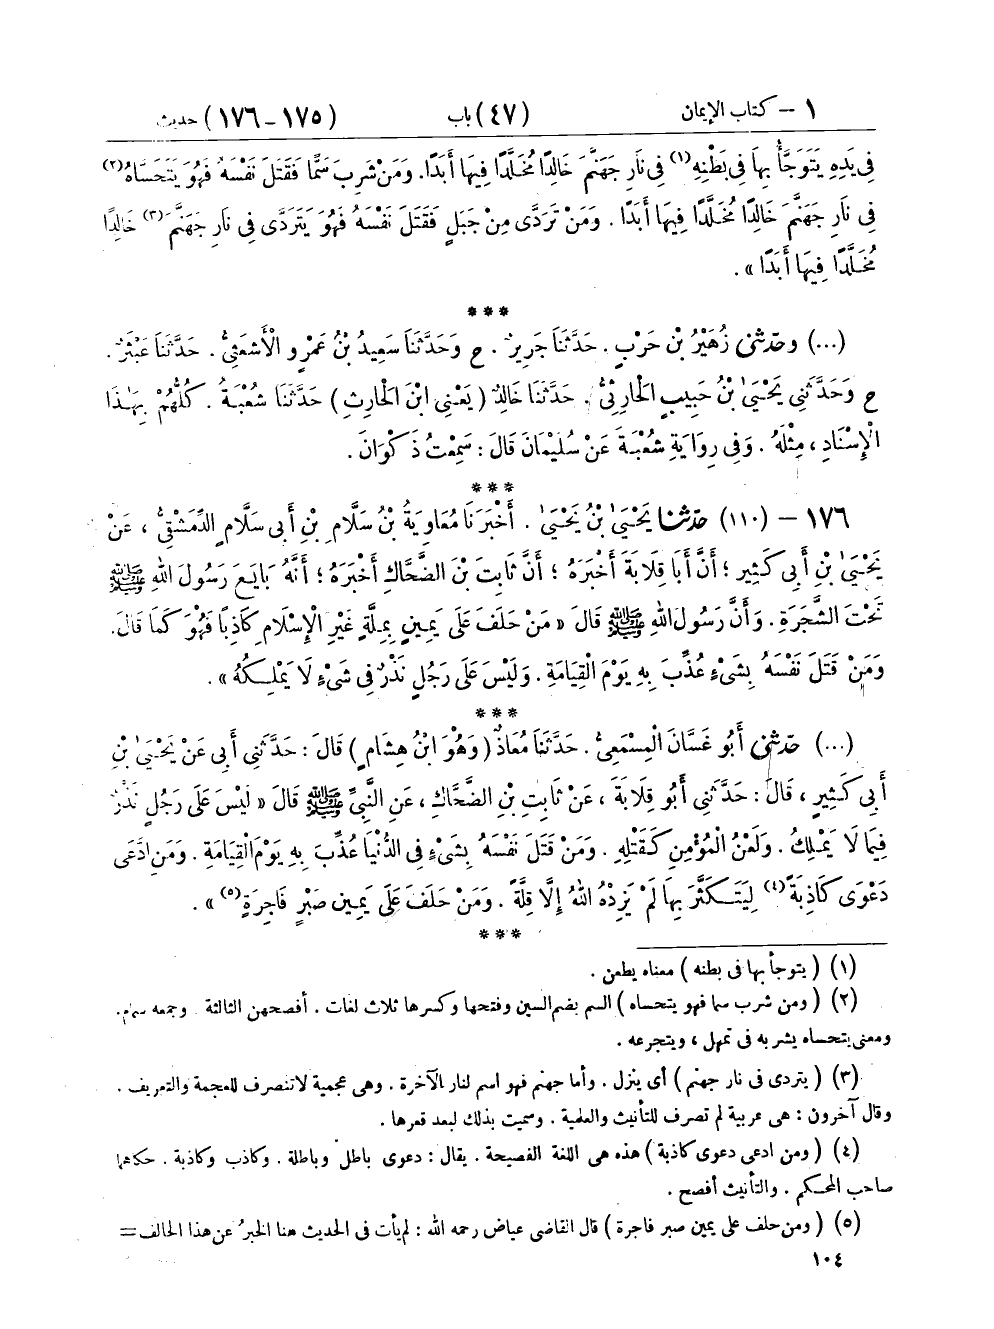 ١ – كتاب الإيمان (٤٧) باب (١٧٥–١٧٦) حديث
فِى يَدِهِ يَتَوَجَّأُ بِهَا فِى بَطْنِهِ (١) فِى نَارِ جَهَنَّمَ خَالِدًا مُخَلَّدًا فِيهَا أَبَدًا. وَمَنْ شَرِبَ سَمًّا فَقَتَلَ نَفْسَهُ فَهُوَ يَتَحَسَّاهُ (٢)
فِى نَارِ جَهَنَّمَ خَالِدًا مُخَلَّدًا فِيهَا أَبَدًا . وَمَنْ تَرَدَّى مِنْ جَبَلٍ فَقَتَلَ نَفْسَهُ فَهُوَ يَتَرَدَّى فِى نَارِ جَهَنَّمَ (٣) خَالِدًا
مُخَلَّدًا فِيهَا أَبَدًا » .
***
(...) وحَدَّثَنِى زُهَيْرُ بْنُ حَرْبٍ . حَدَّثَنَا جَرِيرٌ . ح وَحَدَّثَنَا سَعِيدُ بْنُ عَمْرٍو الْأَشْعَثِىُّ . حَدَّثَنَا عَبْثَرٌ .
ح وَحَدَّثَنِى يَحْيَىٰ بْنُ حَبِيبٍ الْحَارِثِىُّ . حَدَّثَنَا خَالِدٌ ( يَعْنِى ابْنَ الْحَارِثِ ) حَدَّثَنَا شُعْبَةُ . كُلُّهُمْ بِهَٰذَا
الْإِسْنَادِ ، مِثْلَهُ . وَفِى رِوَايَةِ شُعْبَةَ عَنْ سُلَيْمَانَ قَالَ : سَمِعْتُ ذَكْوَانَ .
***
١٧٦ – (١١٠) حَدَّثَنَا يَحْيَىٰ بْنُ يَحْيَىٰ . أَخْبَرَنَا مُعَاوِيَةُ بْنُ سَلَّامِ بْنِ أَبِى سَلَّامٍ الدِّمَشْقِىُّ ، عَنْ
يَحْيَىٰ بْنِ أَبِى كَثِيرٍ ؛ أَنَّ أَبَا قِلَابَةَ أَخْبَرَهُ ؛ أَنَّ ثَابِتَ بْنَ الضَّحَّاكِ أَخْبَرَهُ ؛ أَنَّهُ بَايَعَ رَسُولَ اللهِ ﷺ
تَحْتَ الشَّجَرَةِ . وَأَنَّ رَسُولَ اللهِ ﷺ قَالَ « مَنْ حَلَفَ عَلَى يَمِينٍ بِمِلَّةٍ غَيْرِ الْإِسْلَامِ كَاذِبًا فَهُوَ كَمَا قَالَ.
وَمَنْ قَتَلَ نَفْسَهُ بِشَىْءٍ عُذِّبَ بِهِ يَوْمَ الْقِيَامَةِ . وَلَيْسَ عَلَى رَجُلٍ نَذْرٌ فِى شَىْءٍ لَا يَمْلِكُهُ » .
***
(...) حَدَّثَنِى أَبُو غَسَّانَ الْمِسْمَعِىُّ . حَدَّثَنَا مُعَاذٌ ( وَهُوَ ابْنُ هِشَامٍ ) قَالَ : حَدَّثَنِى أَبِى عَنْ يَحْيَىٰ بْنِ
أَبِى كَثِيرٍ ، قَالَ : حَدَّثَنِى أَبُو قِلَابَةَ ، عَنْ ثَابِتِ بْنِ الضَّحَّاكِ ، عَنِ النَّبِىِّ ﷺ قَالَ « لَيْسَ عَلَى رَجُلٍ نَذْرٌ
فِيمَا لَا يَمْلِكُ . وَلَعْنُ الْمُؤْمِنِ كَقَتْلِهِ . وَمَنْ قَتَلَ نَفْسَهُ بِشَىْءٍ فِى الدُّنْيَا عُذِّبَ بِهِ يَوْمَ الْقِيَامَةِ . وَمَنِ ادَّعَى
دَعْوَى كَاذِبَةً (٤) لِيَتَكَثَّرَ بِهَا لَمْ يَزِدْهُ اللهُ إِلَّا قِلَّةً . وَمَنْ حَلَفَ عَلَى يَمِينِ صَبْرٍ فَاجِرَةٍ (٥) » .
***
(١) ( يتوجأ بها فى بطنه ) معناه يطعن .
(٢) ( ومن شرب سما فهو يتحساه ) السم بضم السين وفتحها وكسرها ثلاث لغات . أفصحهن الثالثة وجمعه سمام.
ومعنى يتحساه يشربه فى تمهل ، ويتجرعه .
(٣) ( يتردى فى نار جهنم ) أى ينزل . وأما جهنم فهو اسم لنار الآخرة . وهى عجمية لاتنصرف للعجمة والتعريف .
وقال آخرون : هى عربية لم تصرف للتأنيث والعلمية . وسميت بذلك لبعد قعرها .
(٤) ( ومن ادعى دعوى كاذبة ) هذه هى اللغة الفصيحة . يقال : دعوى باطل وباطلة . وكاذب وكاذبة . حكاهما
صاحب المحكم . والتأنيث أفصح .
(٥) ( ومن حلف على يمين صبر فاجرة ) قال القاضى عياض رحمه الله : لم يأت فى الحديث هنا الخبرُ عن هذا الحالف =
١٠٤